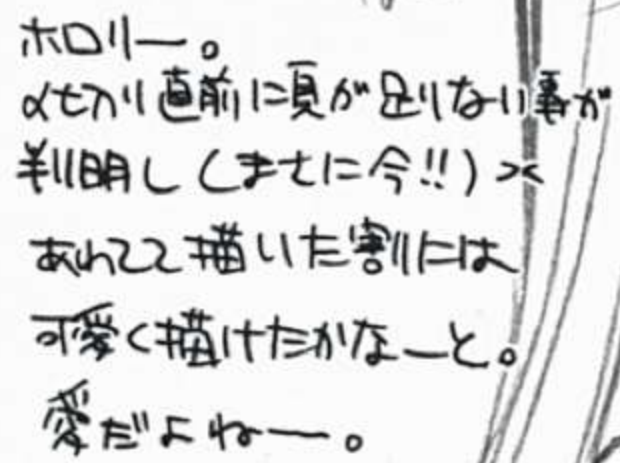 ホロリー。
〆切り直前に頁が足りない事が
判明し(まさに今!!)><
あわてて描いた割には
可愛く描けたかなーと。
愛だよねー。